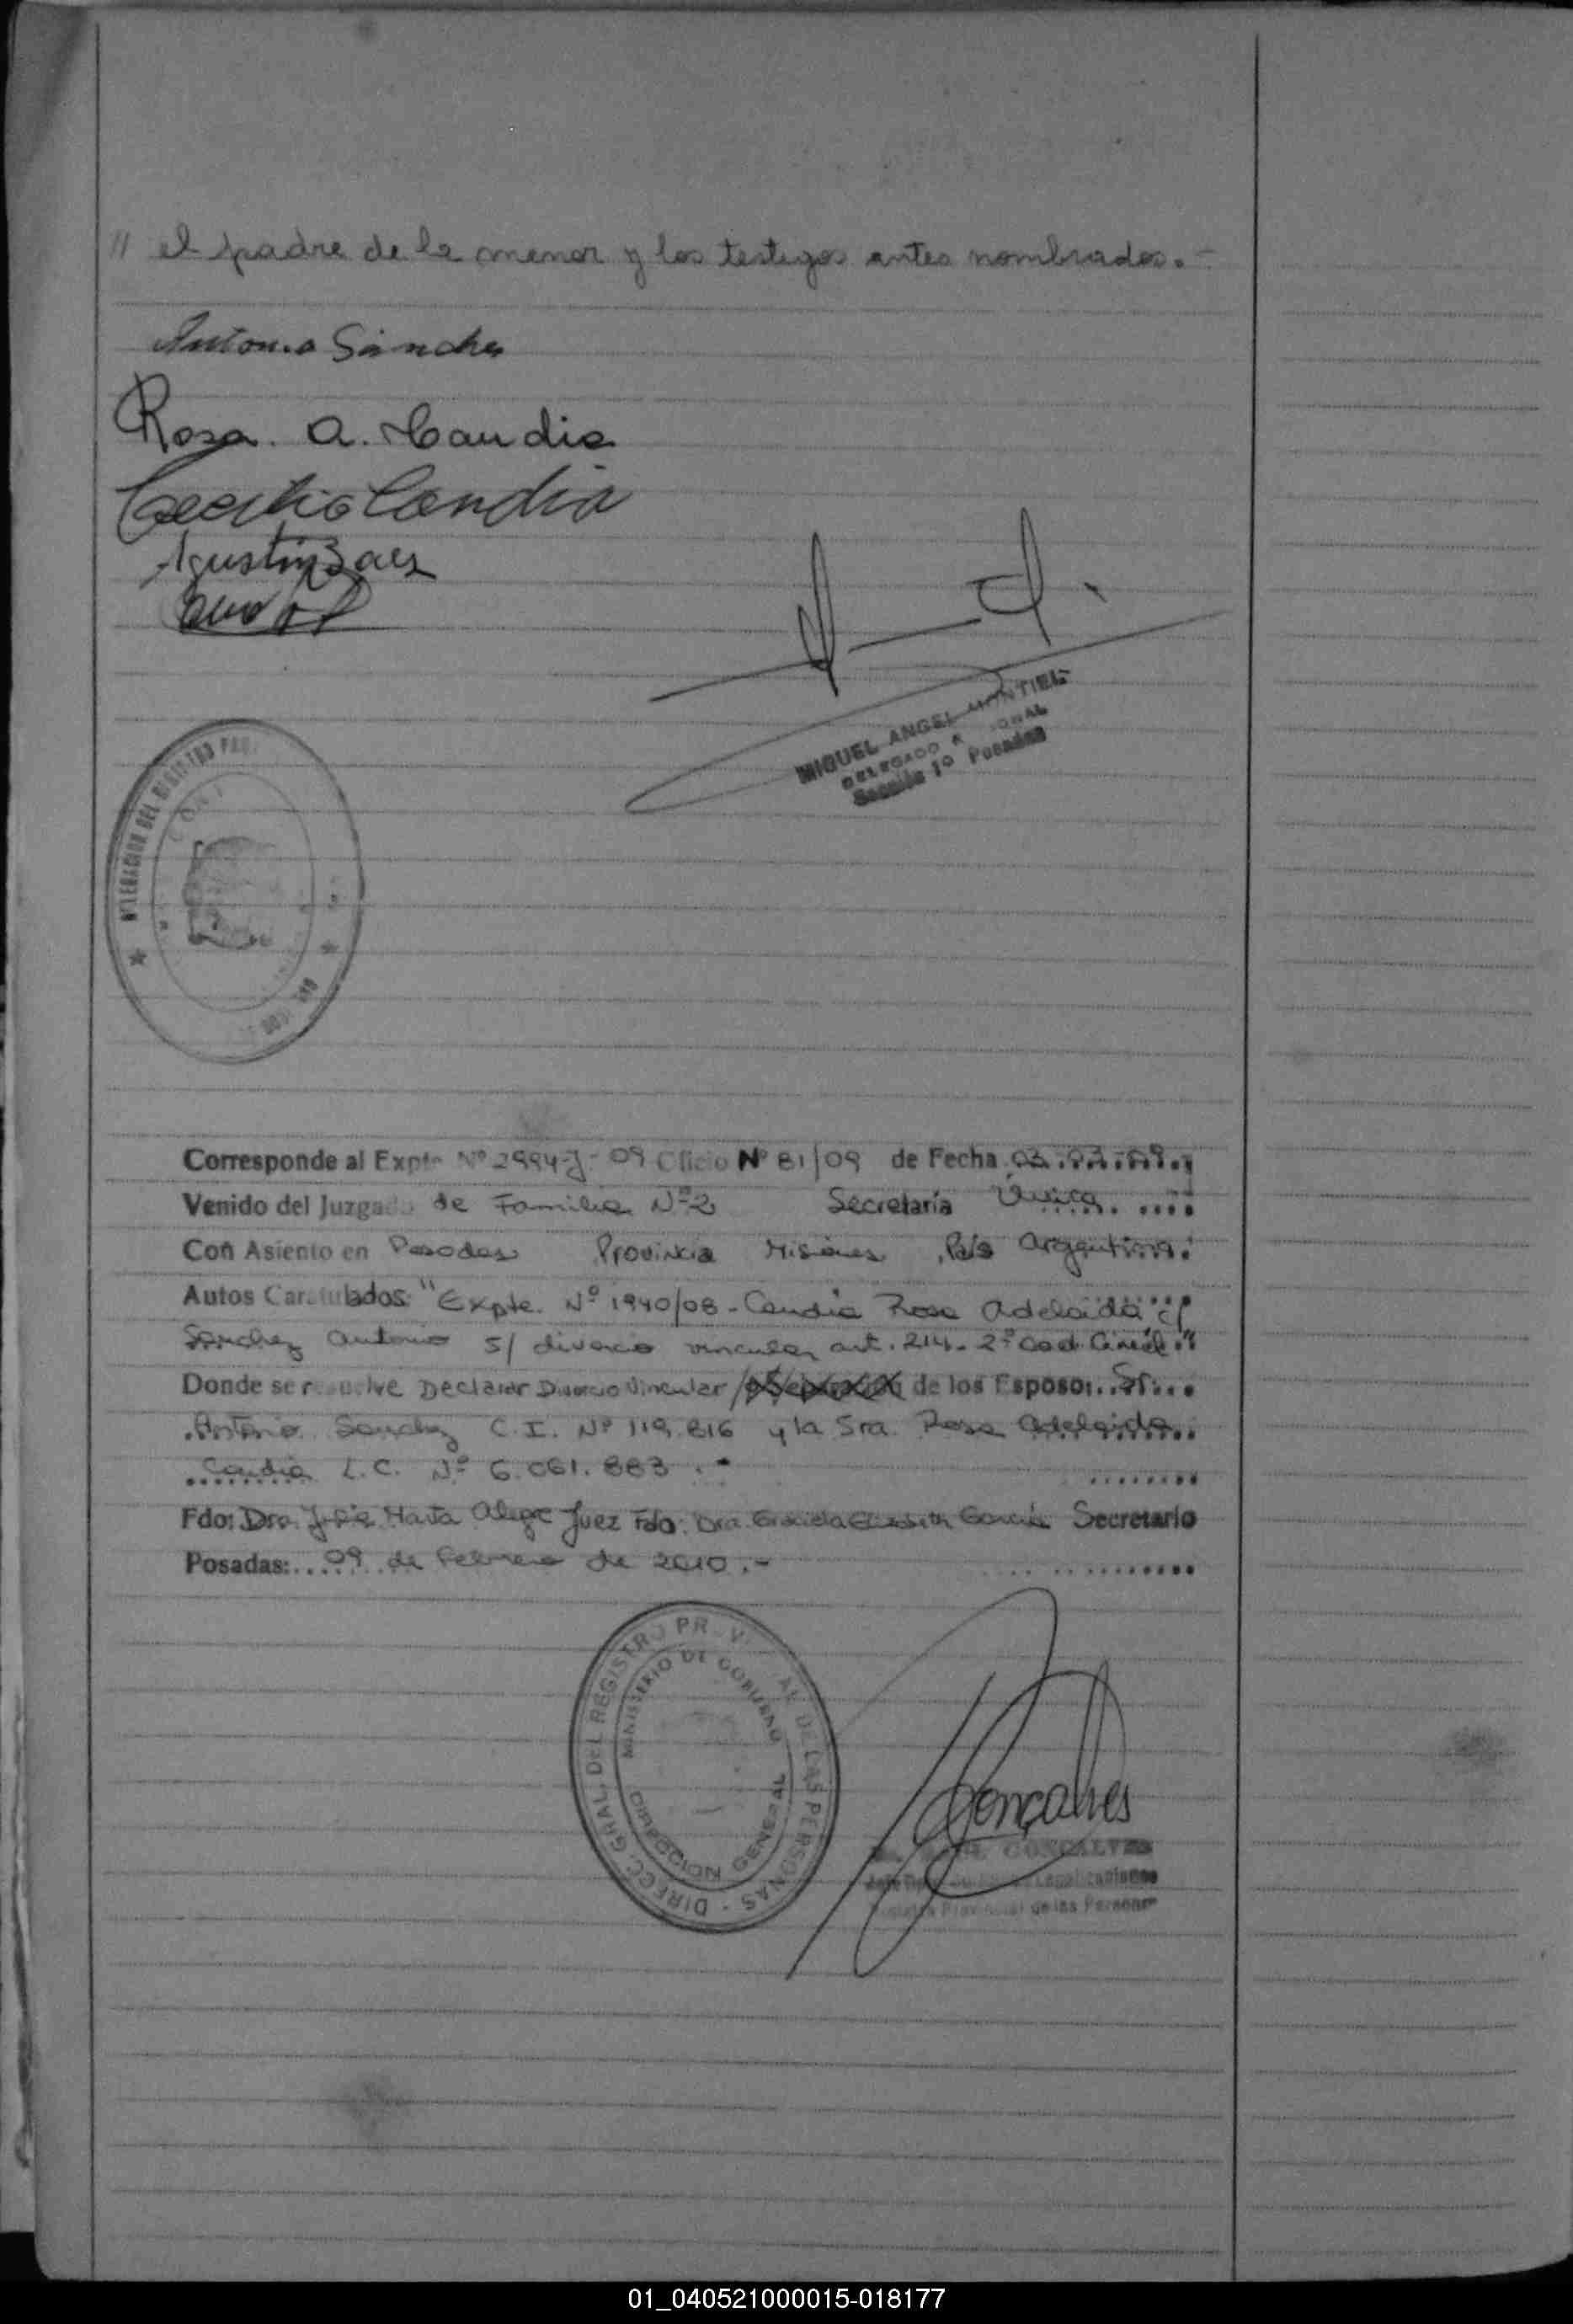 // el padre de la menor y los testigos antes nombrados.-
Antonio Sánchez
Rosa. A. Candia
Cecilio Candia
Agustin Baez
MIGUEL ANGEL MONTIEL
DELEGADO
Sección 1º Posadas
DELEGACION DEL REGISTRO
Corresponde al Expte Nº 2994-J-09 Oficio Nº 81/09 de Fecha 03.03.09.
Venido del Juzgado de Familia Nº 2 Secretaría Única
Con Asiento en Posadas Provincia Misiones País Argentina.
Autos Caratulados: "Expte. Nº 1940/08 - Candia Rosa Adelaida c/
Sanchez Antonio s/ divorcio vincular art. 214. 2º Cod. Civil."
Donde se resuelve Declarar Divorcio Vincular / o Separación de los Esposo: Sr.
Antonio Sanchez C.I. Nº 119.816 y la Sra. Rosa Adelaida
Candia L.C. Nº 6.061.883.-
Fdo: Dra. Marta Alegre Juez Fdo: Dra. Graciela Elisabeth Garcia Secretario
Posadas: 09 de Febrero de 2010.-
DIRECC. GRAL. DEL REGISTRO PROVINCIAL DE LAS PERSONAS
MINISTERIO DE GOBIERNO
DIRECCION GENERAL
Gonçalves
GONÇALVES
Legalizaciones
Provincial de las Personas
01_040521000015-018177